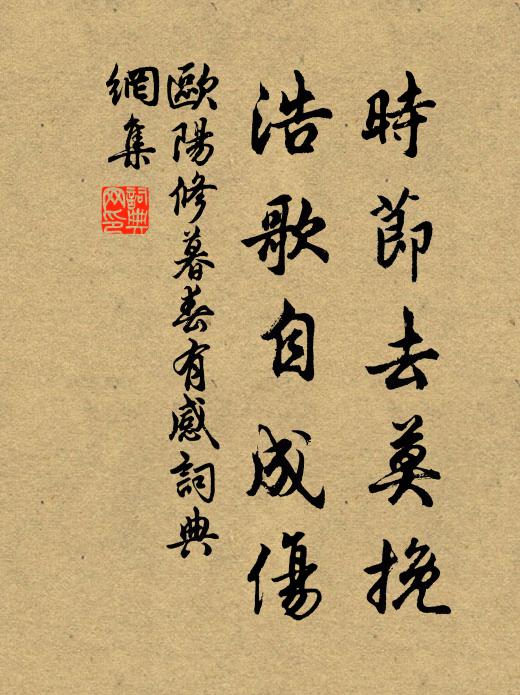 時節去莫挽
浩歌自成傷
歐陽修暮春有感詞典
網集
詞典
网印